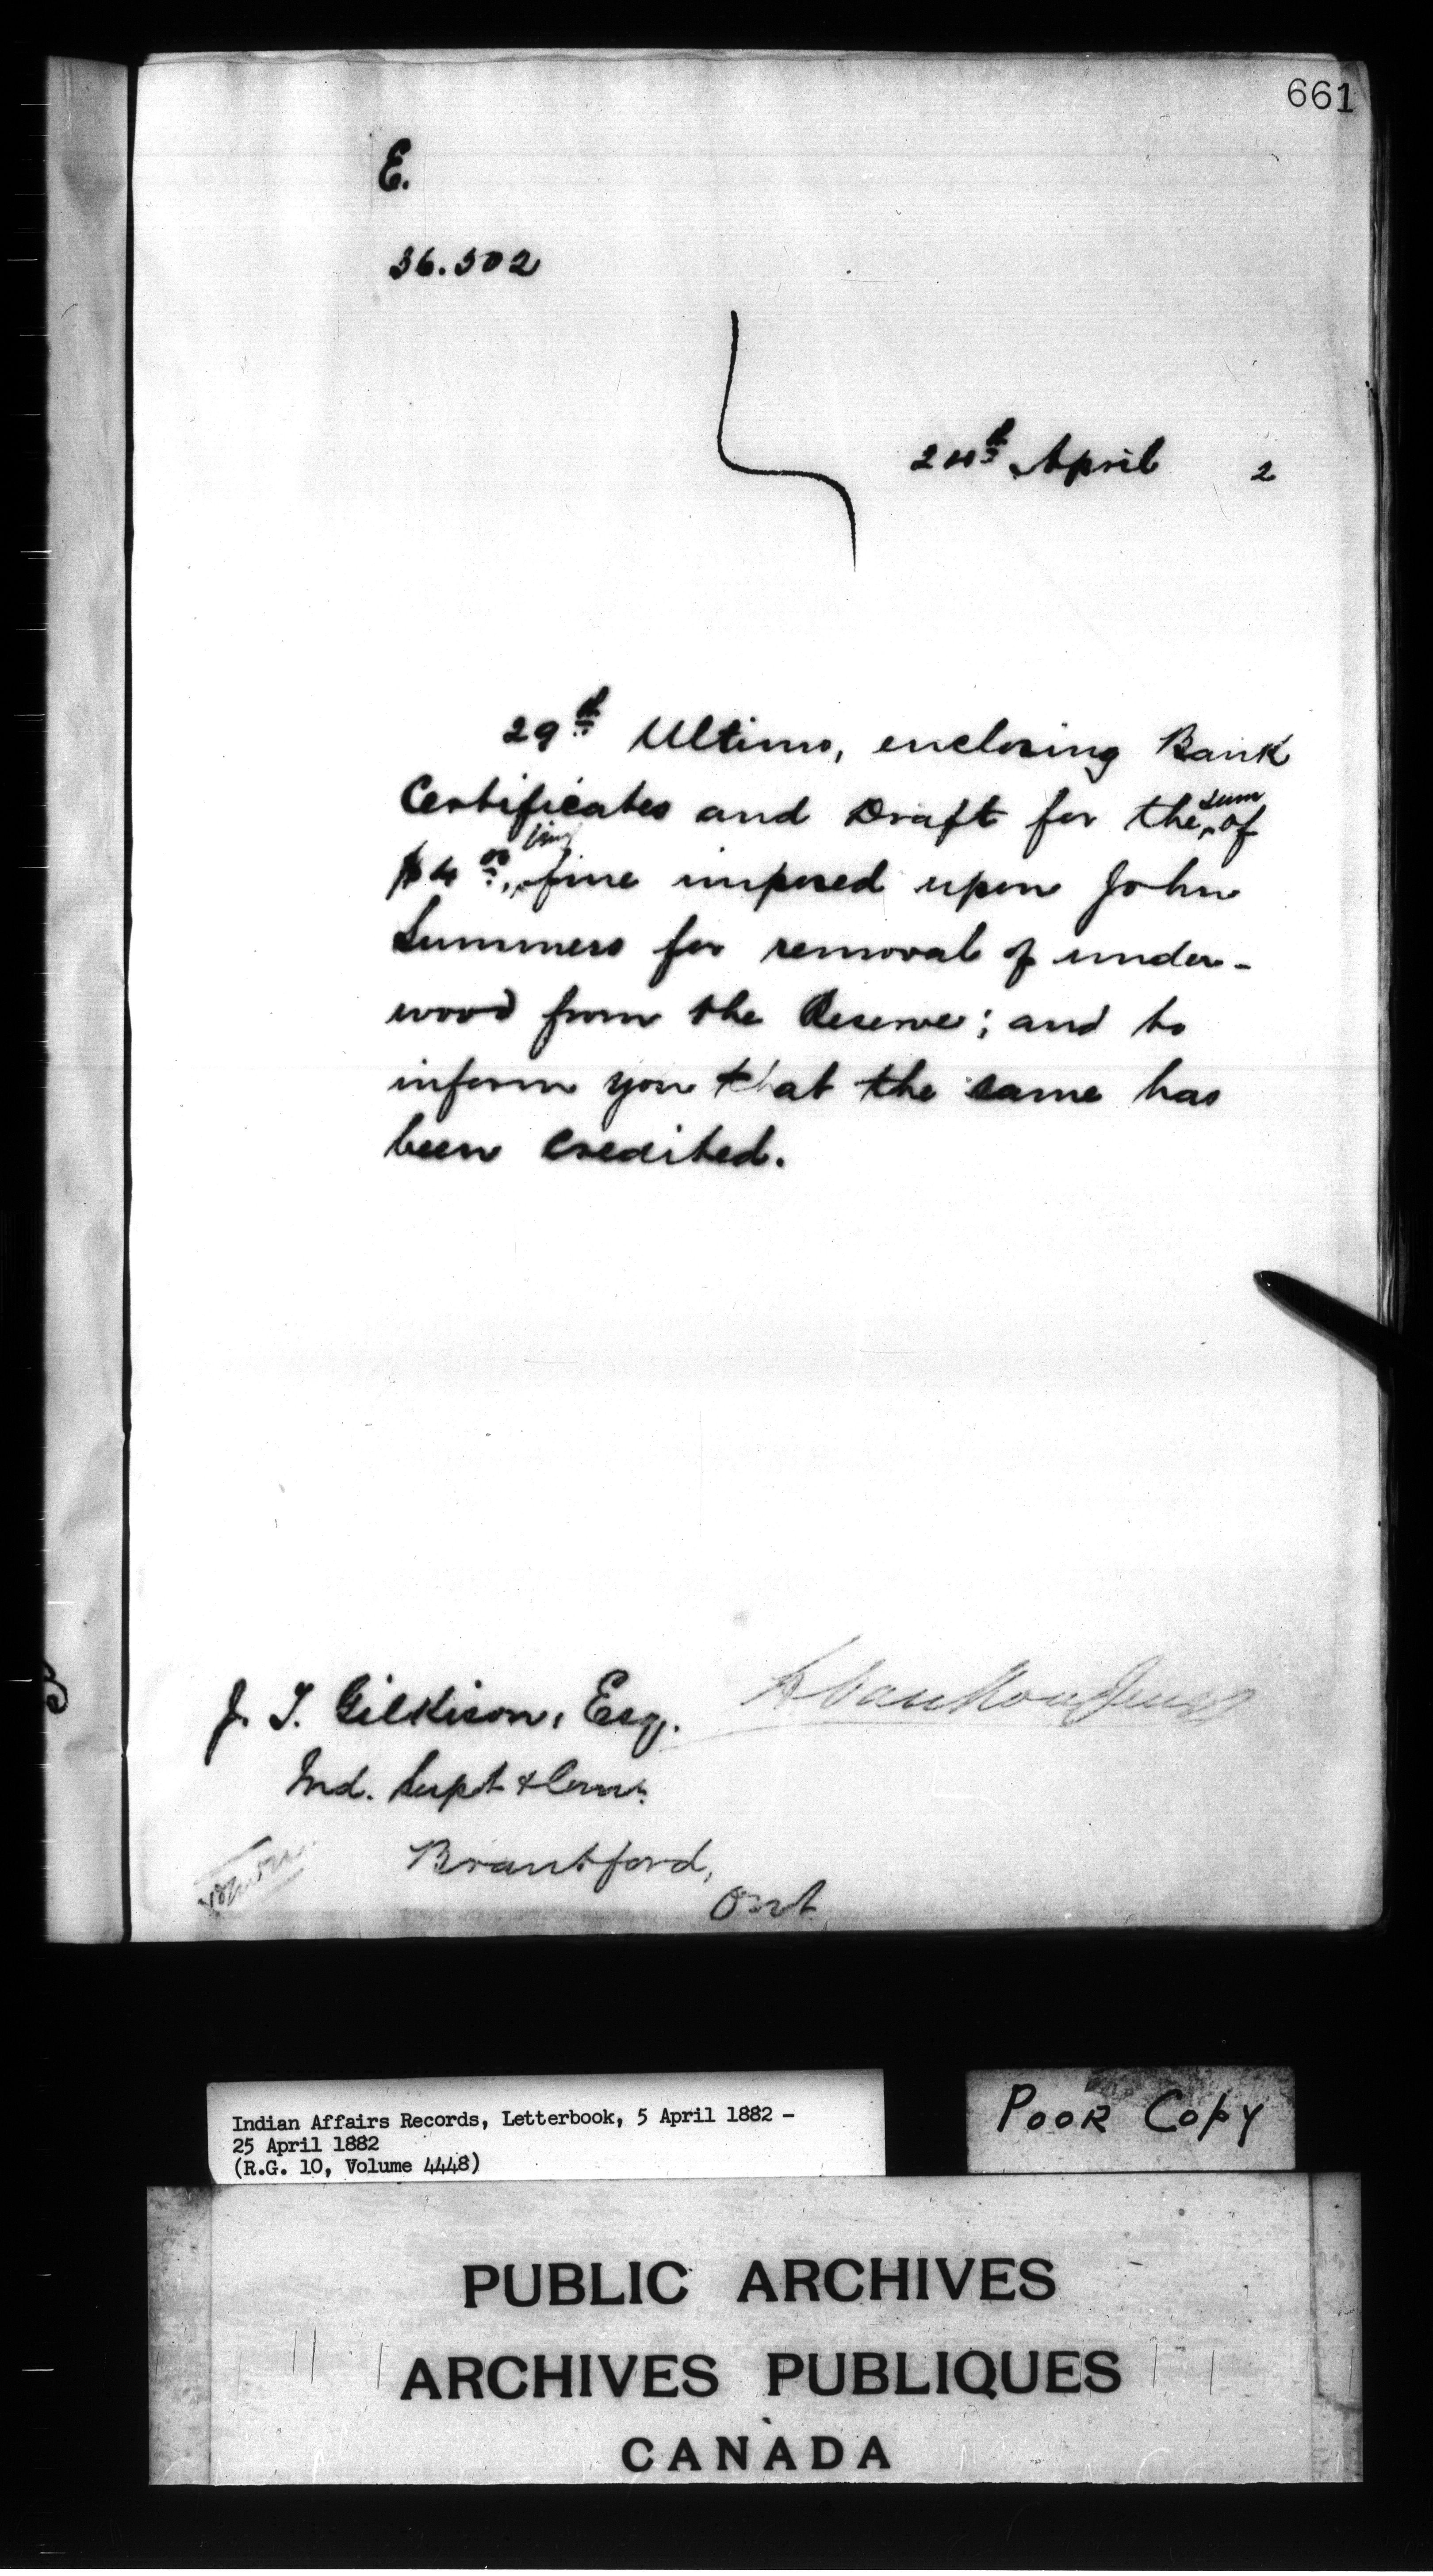 661
E.
36.502
24th April 2
29th Ultimo, enclosing Bank
Certificates and Draft for the sum of
$4.00, being fine imposed upon John
Summers for removal of under-
wood from the Reserve; and to
inform you that the same has
been credited.
J. T. Gilkison, Esq.
Ind. Supt & Comr.
Brantford,
Ont
Indian Affairs Records, Letterbook, 5 April 1882 -
25 April 1882
(R.G. 10, Volume 4448)
POOR COPY
PUBLIC ARCHIVES
ARCHIVES PUBLIQUES
CANADA